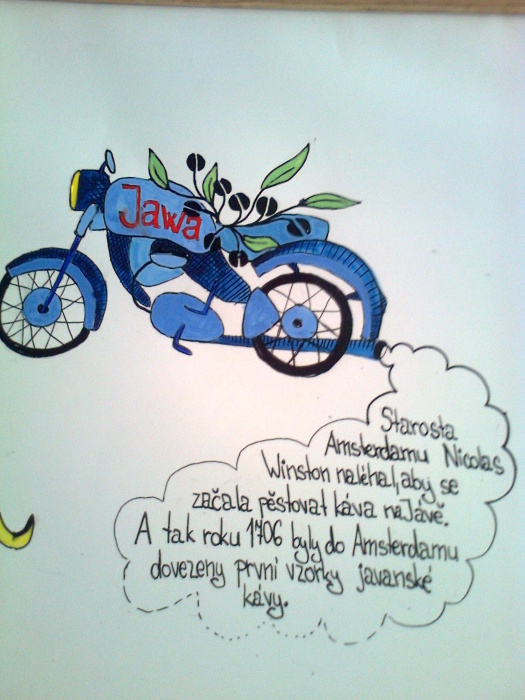 Jawa
Starosta
Amsterdamu Nicolas
Winston naléhal, aby se
začala pěstovat káva na Jávě.
A tak roku 1706 byly do Amsterdamu
dovezeny první vzorky javanské
kávy.